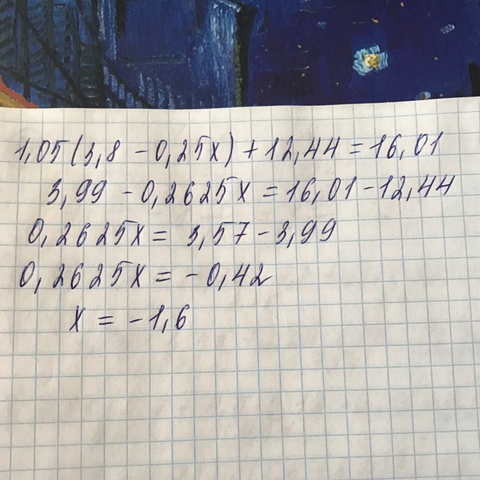 1,05(3,8 - 0,25x) + 12,44 = 16,01
3,99 - 0,2625x = 16,01 - 12,44
0,2625x = 3,57 - 3,99
0,2625x = -0,42
x = -1,6